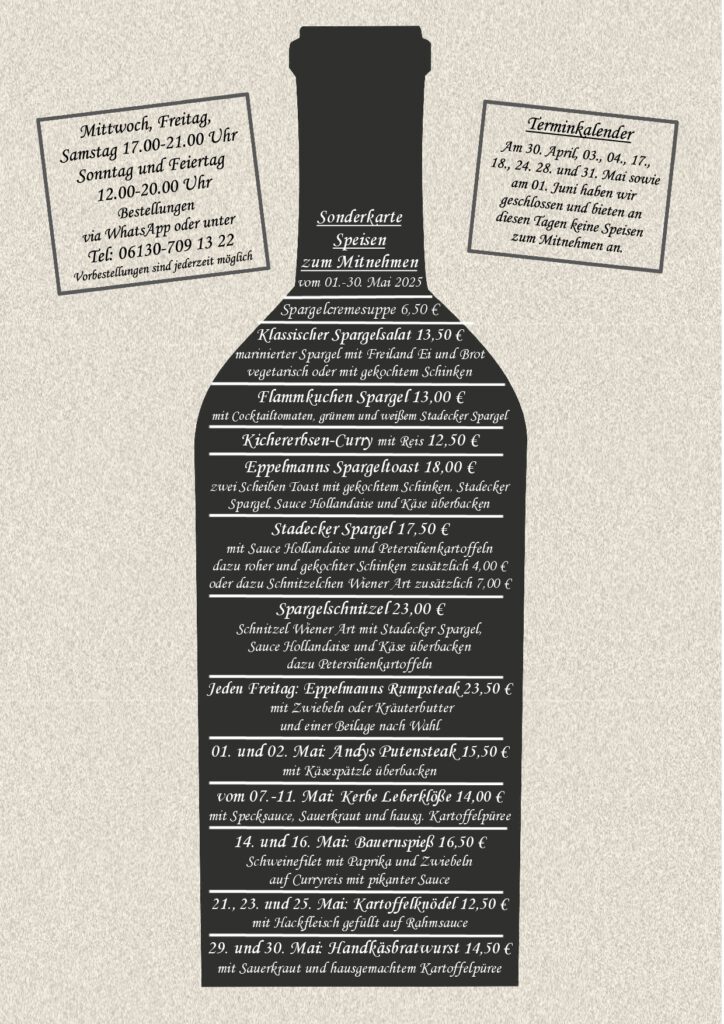 Mittwoch, Freitag,
Samstag 17.00-21.00 Uhr
Sonntag und Feiertag
12.00-20.00 Uhr
Bestellungen
via WhatsApp oder unter
Tel: 06130-709 13 22
Vorbestellungen sind jederzeit möglich
Terminkalender
Am 30. April, 03., 04., 17.,
18., 24. 28. und 31. Mai sowie
am 01. Juni haben wir
geschlossen und bieten an
diesen Tagen keine Speisen
zum Mitnehmen an.
Sonderkarte
Speisen
zum Mitnehmen
vom 01.-30. Mai 2025
Spargelcremesuppe 6,50 €
Klassischer Spargelsalat 13,50 €
marinierter Spargel mit Freiland Ei und Brot
vegetarisch oder mit gekochtem Schinken
Flammkuchen Spargel 13,00 €
mit Cocktailtomaten, grünem und weißem Stadecker Spargel
Kichererbsen-Curry mit Reis 12,50 €
Eppelmanns Spargeltoast 18,00 €
zwei Scheiben Toast mit gekochtem Schinken, Stadecker
Spargel, Sauce Hollandaise und Käse überbacken
Stadecker Spargel 17,50 €
mit Sauce Hollandaise und Petersilienkartoffeln
dazu roher und gekochter Schinken zusätzlich 4,00 €
oder dazu Schnitzelchen Wiener Art zusätzlich 7,00 €
Spargelschnitzel 23,00 €
Schnitzel Wiener Art mit Stadecker Spargel,
Sauce Hollandaise und Käse überbacken
dazu Petersilienkartoffeln
Jeden Freitag: Eppelmanns Rumpsteak 23,50 €
mit Zwiebeln oder Kräuterbutter
und einer Beilage nach Wahl
01. und 02. Mai: Andys Putensteak 15,50 €
mit Käsespätzle überbacken
vom 07.-11. Mai: Kerbe Leberklöße 14,00 €
mit Specksauce, Sauerkraut und hausg. Kartoffelpüree
14. und 16. Mai: Bauernspieß 16,50 €
Schweinefilet mit Paprika und Zwiebeln
auf Curryreis mit pikanter Sauce
21., 23. und 25. Mai: Kartoffelknödel 12,50 €
mit Hackfleisch gefüllt auf Rahmsauce
29. und 30. Mai: Handkäsbratwurst 14,50 €
mit Sauerkraut und hausgemachtem Kartoffelpüree